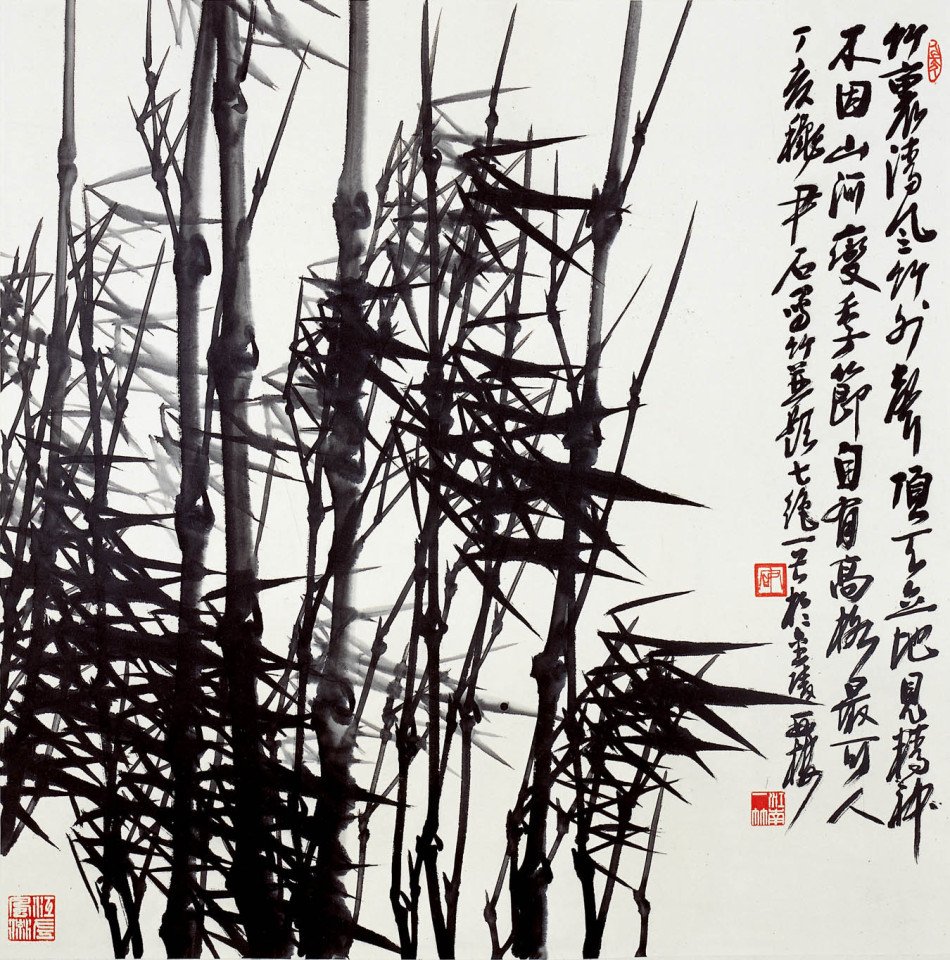 竹裏清風竹外聲頂天立地見精神
不因山河變季節自有高格最可人
丁亥穐尹石寫竹並題七絕一首於金陵西樓
江南一竹